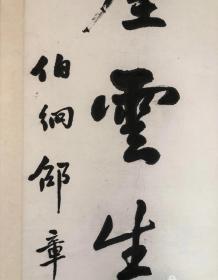 雲生
伯絅邵章